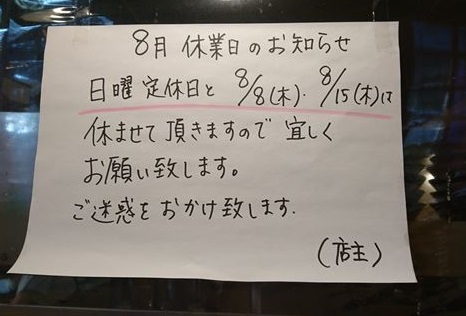 8月 休業日のお知らせ
日曜 定休日と 8/8(木)・8/15(木)は
休ませて頂きますので 宜しく
お願い致します。
ご迷惑をおかけ致します.
(店主)